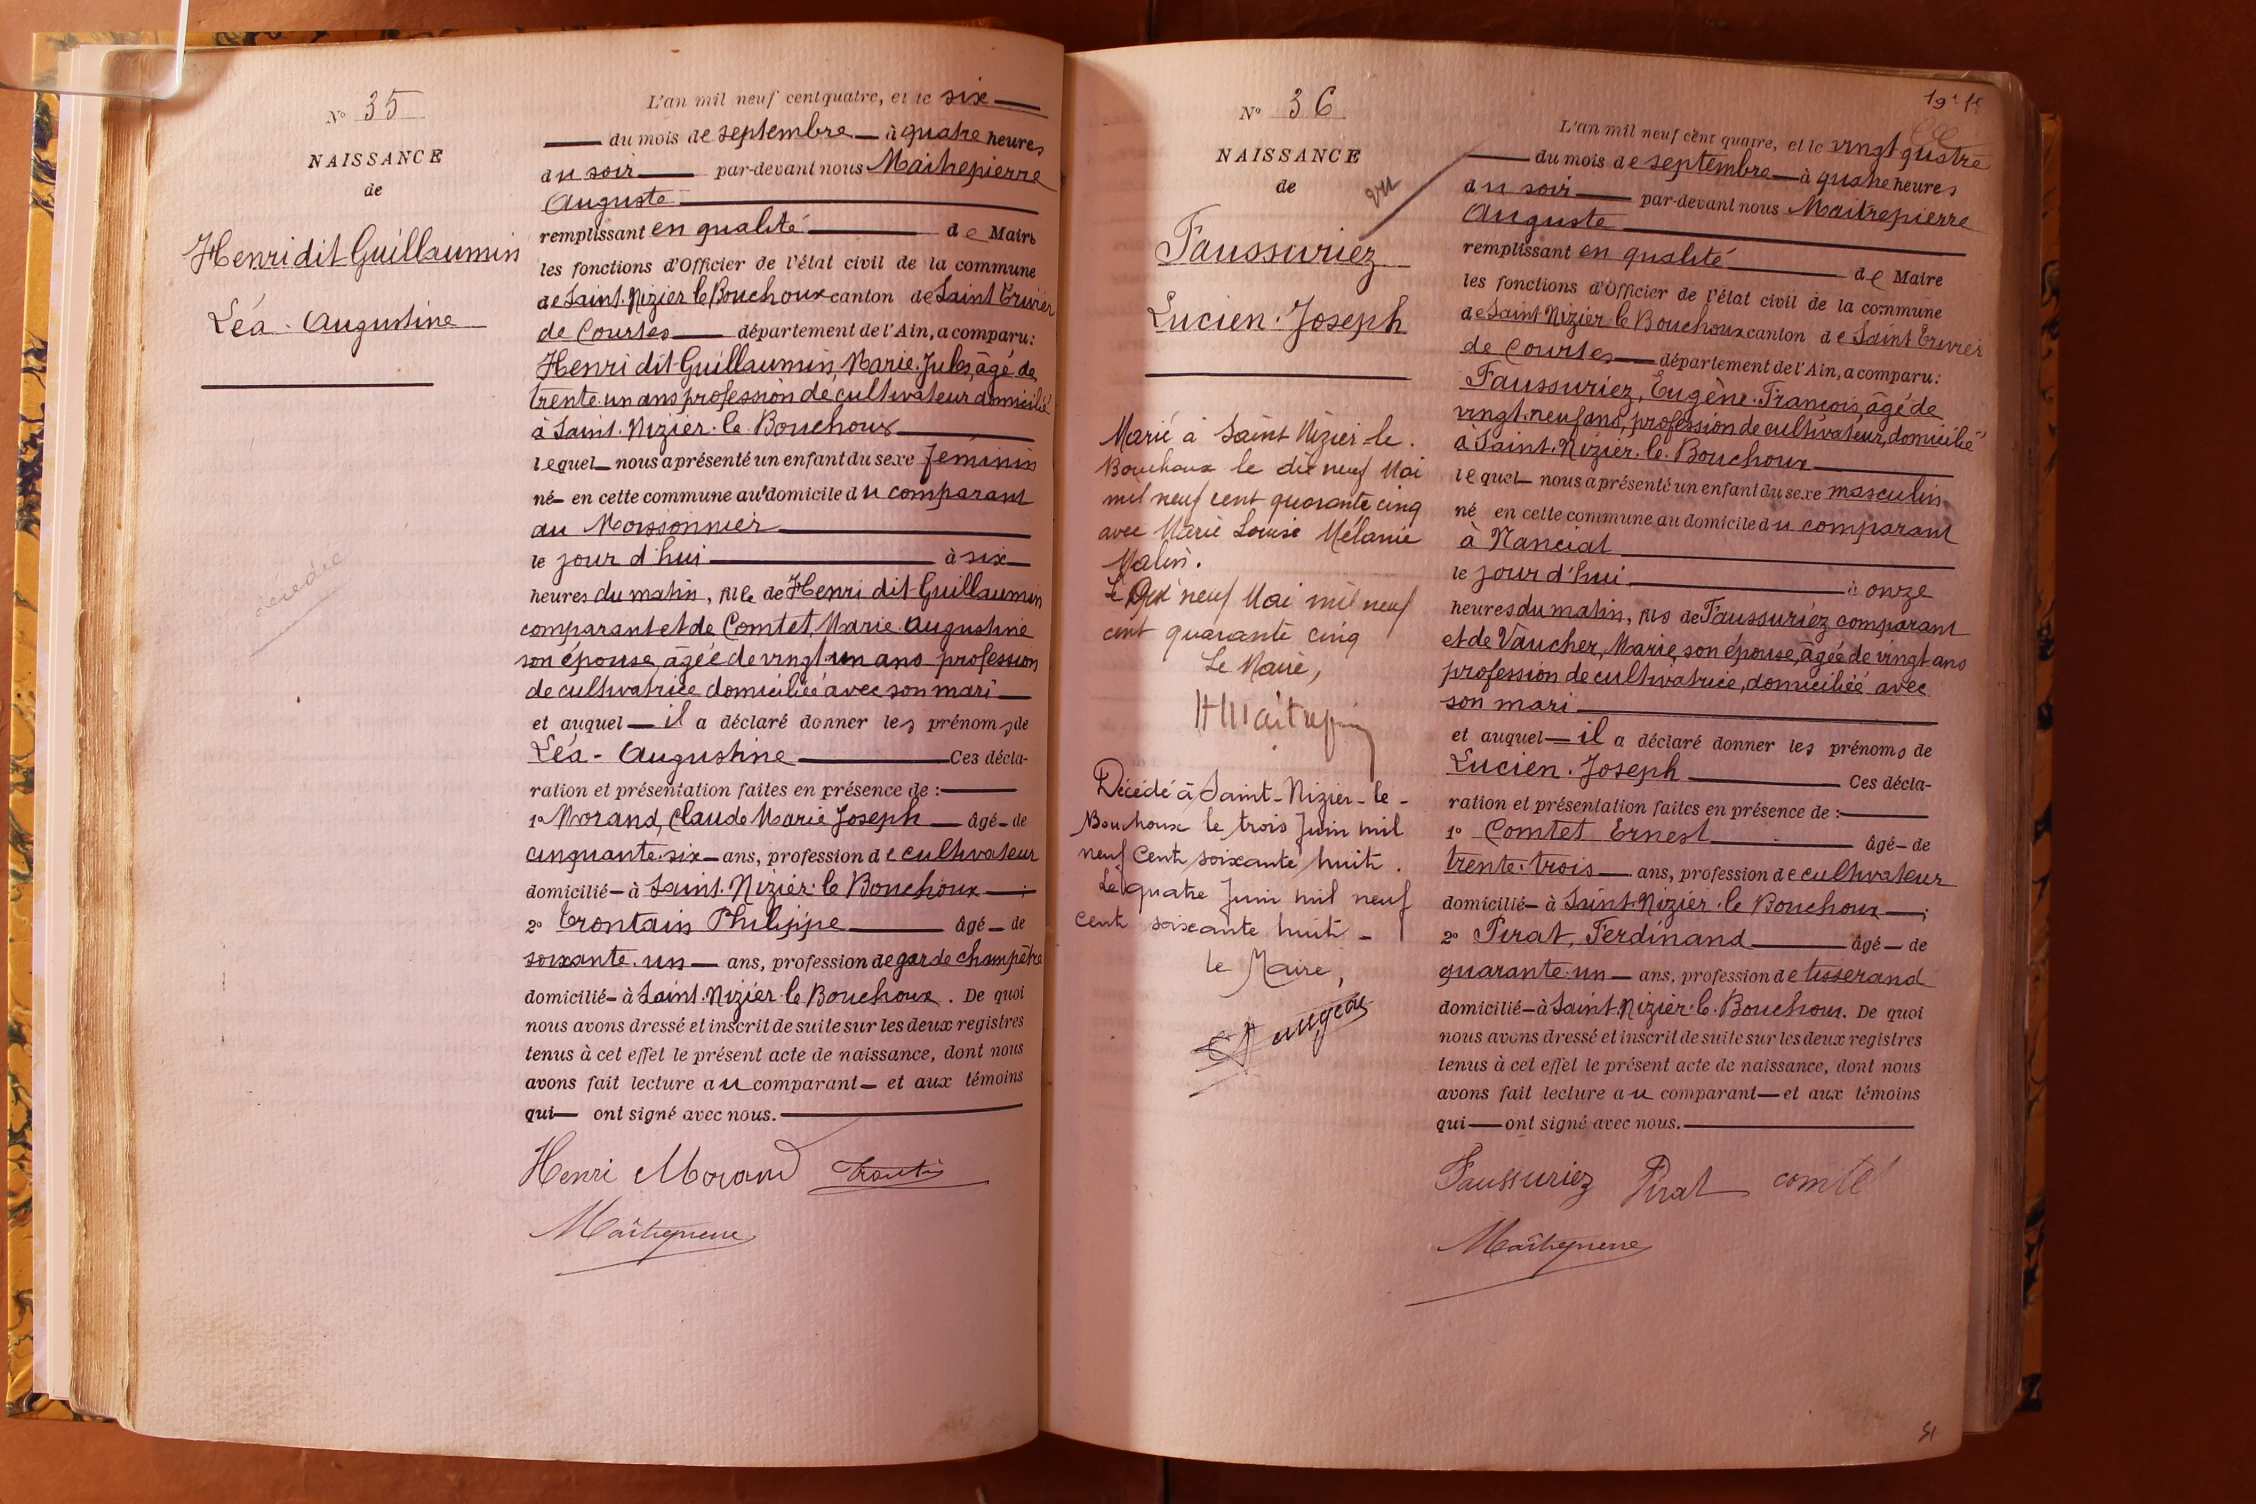 N° 35
NAISSANCE
de
Henri dit Guillaumin
Léa. Augustine
décédée
L'an mil neuf cent quatre, et le six
du mois de septembre à quatre heures
du soir par-devant nous Maitrepierre
Auguste
remplissant en qualité de Maire
les fonctions d'Officier de l'état civil de la commune
de Saint. Nizier le Bouchoux canton de Saint Trivier
de Courtes département de l'Ain, a comparu:
Henri dit Guillaumin, Marie. Jules, âgé de
trente un ans profession de cultivateur domicilié
à Saint. Nizier. le. Bouchoux
lequel nous a présenté un enfant du sexe féminin
né en cette commune au domicile du comparant
au Moissonnier
le jour d'hui à six
heures du matin, fille de Henri dit Guillaumin
comparant et de Comtet, Marie. Augustine
son épouse, âgée de vingt un ans profession
de cultivatrice domiciliée avec son mari
et auquel il a déclaré donner les prénoms de
Léa - Augustine Ces décla-
ration et présentation faites en présence de :
1° Morand, Claude Marie Joseph âgé de
cinquante. six ans, profession de cultivateur
domicilié à Saint. Nizier. le Bouchoux ;
2° Trontain Philippe âgé de
soixante. un ans, profession de garde champêtre
domicilié à Saint. Nizier. le Bouchoux. De quoi
nous avons dressé et inscrit de suite sur les deux registres
tenus à cet effet le présent acte de naissance, dont nous
avons fait lecture au comparant et aux témoins
qui ont signé avec nous.
Henri Morand Trontin
Maitrepierre
N° 36
NAISSANCE
de
vu
Faussuriez
Lucien. Joseph
Marié à Saint Nizier-le.
Bouchoux le dix neuf Mai
mil neuf cent quarante cinq
avec Marie Louise Mélanie
Malin.
Le Dix neuf Mai mil neuf
cent quarante cinq
Le Maire,
Décédé à Saint-Nizier-le-
Bouchoux le trois Juin mil
neuf Cent soixante huit.
Le quatre Juin mil neuf
Cent soixante huit -
le Maire,
L'an mil neuf cent quatre, et le vingt quatre
du mois de septembre à quatre heures
du soir par-devant nous Maitrepierre
Auguste
remplissant en qualité de Maire
les fonctions d'Officier de l'état civil de la commune
de Saint Nizier le Bouchoux canton de Saint Trivier
de Courtes département de l'Ain, a comparu:
Faussuriez, Eugène. François, âgé de
vingt. neuf ans, profession de cultivateur, domicilié
à Saint. Nizier. le. Bouchoux
lequel nous a présenté un enfant du sexe masculin
né en cette commune au domicile du comparant
à Nanciat
le jour d'hui à onze
heures du matin, fils de Faussuriez comparant
et de Vaucher, Marie, son épouse, âgée de vingt ans
profession de cultivatrice, domiciliée avec
son mari
et auquel il a déclaré donner les prénoms de
Lucien. Joseph Ces décla-
ration et présentation faites en présence de :
1° Comtet Ernest âgé de
trente. trois ans, profession de cultivateur
domicilié à Saint. Nizier. le Bouchoux ;
2° Pirat, Ferdinand âgé de
quarante. un ans, profession de tisserand
domicilié à Saint. Nizier. le. Bouchoux. De quoi
nous avons dressé et inscrit de suite sur les deux registres
tenus à cet effet le présent acte de naissance, dont nous
avons fait lecture au comparant et aux témoins
qui ont signé avec nous.
Faussuriez Pirat comtet
Maitrepierre